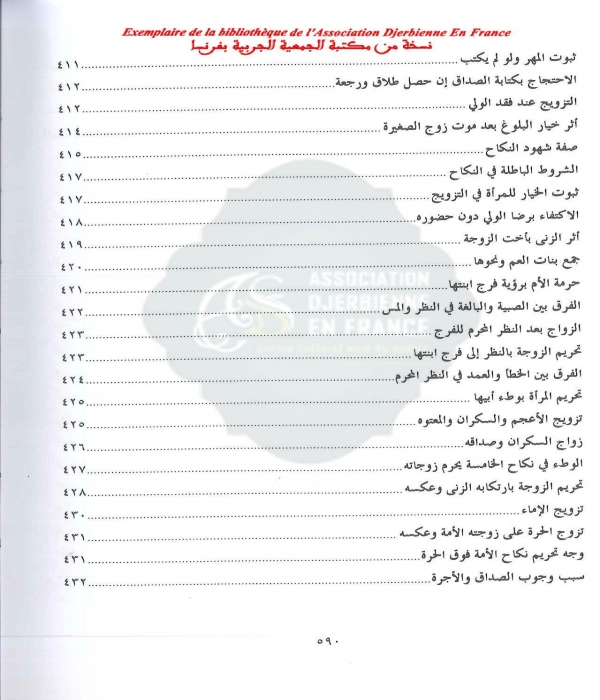 Exemplaire de la bibliothèque de l'Association Djerbienne En France
نسخة من مكتبة الجمعية الجربية بفرنسا
ثبوت المهر ولو لم يكتب ٤١١
الاحتجاج بكتابة الصداق إن حصل طلاق ورجعة ٤١٢
التزويج عند فقد الولي ٤١٢
أثر خيار البلوغ بعد موت زوج الصغيرة ٤١٤
صفة شهود النكاح ٤١٥
الشروط الباطلة في النكاح ٤١٧
ثبوت الخيار للمرأة في التزويج ٤١٧
الاكتفاء برضا الولي دون حضوره ٤١٨
أثر الزنى بأخت الزوجة ٤١٩
جمع بنات العم ونحوها ٤٢٠
حرمة الأم برؤية فرج ابنتها ٤٢١
الفرق بين الصبية والبالغة في النظر والمس ٤٢٢
الزواج بعد النظر المحرم للفرج ٤٢٣
تحريم الزوجة بالنظر إلى فرج ابنتها ٤٢٣
الفرق بين الخطأ والعمد في النظر المحرم ٤٢٤
تحريم المرأة بوطء أبيها ٤٢٥
تزويج الأعجم والسكران والمعتوه ٤٢٥
زواج السكران وصداقه ٤٢٦
الوطء في نكاح الخامسة يحرم زوجاته ٤٢٧
تحريم الزوجة بارتكابه الزنى وعكسه ٤٢٨
تزويج الإماء ٤٣٠
تزوج الحرة على زوجته الأمة وعكسه ٤٣١
وجه تحريم نكاح الأمة فوق الحرة ٤٣١
سبب وجوب الصداق والأجرة ٤٣٢
ASSOCIATION
DJERBIENNE
EN FRANCE
٥٩٠